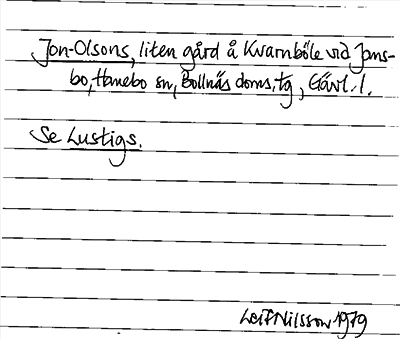 Jon-Olsons, liten gård å Kvarnböle vid Jons-
bo, Hanebo sn, Bollnäs doms.tg, Gävl. l.
Se Lustigs.
Leif Nilsson 1979